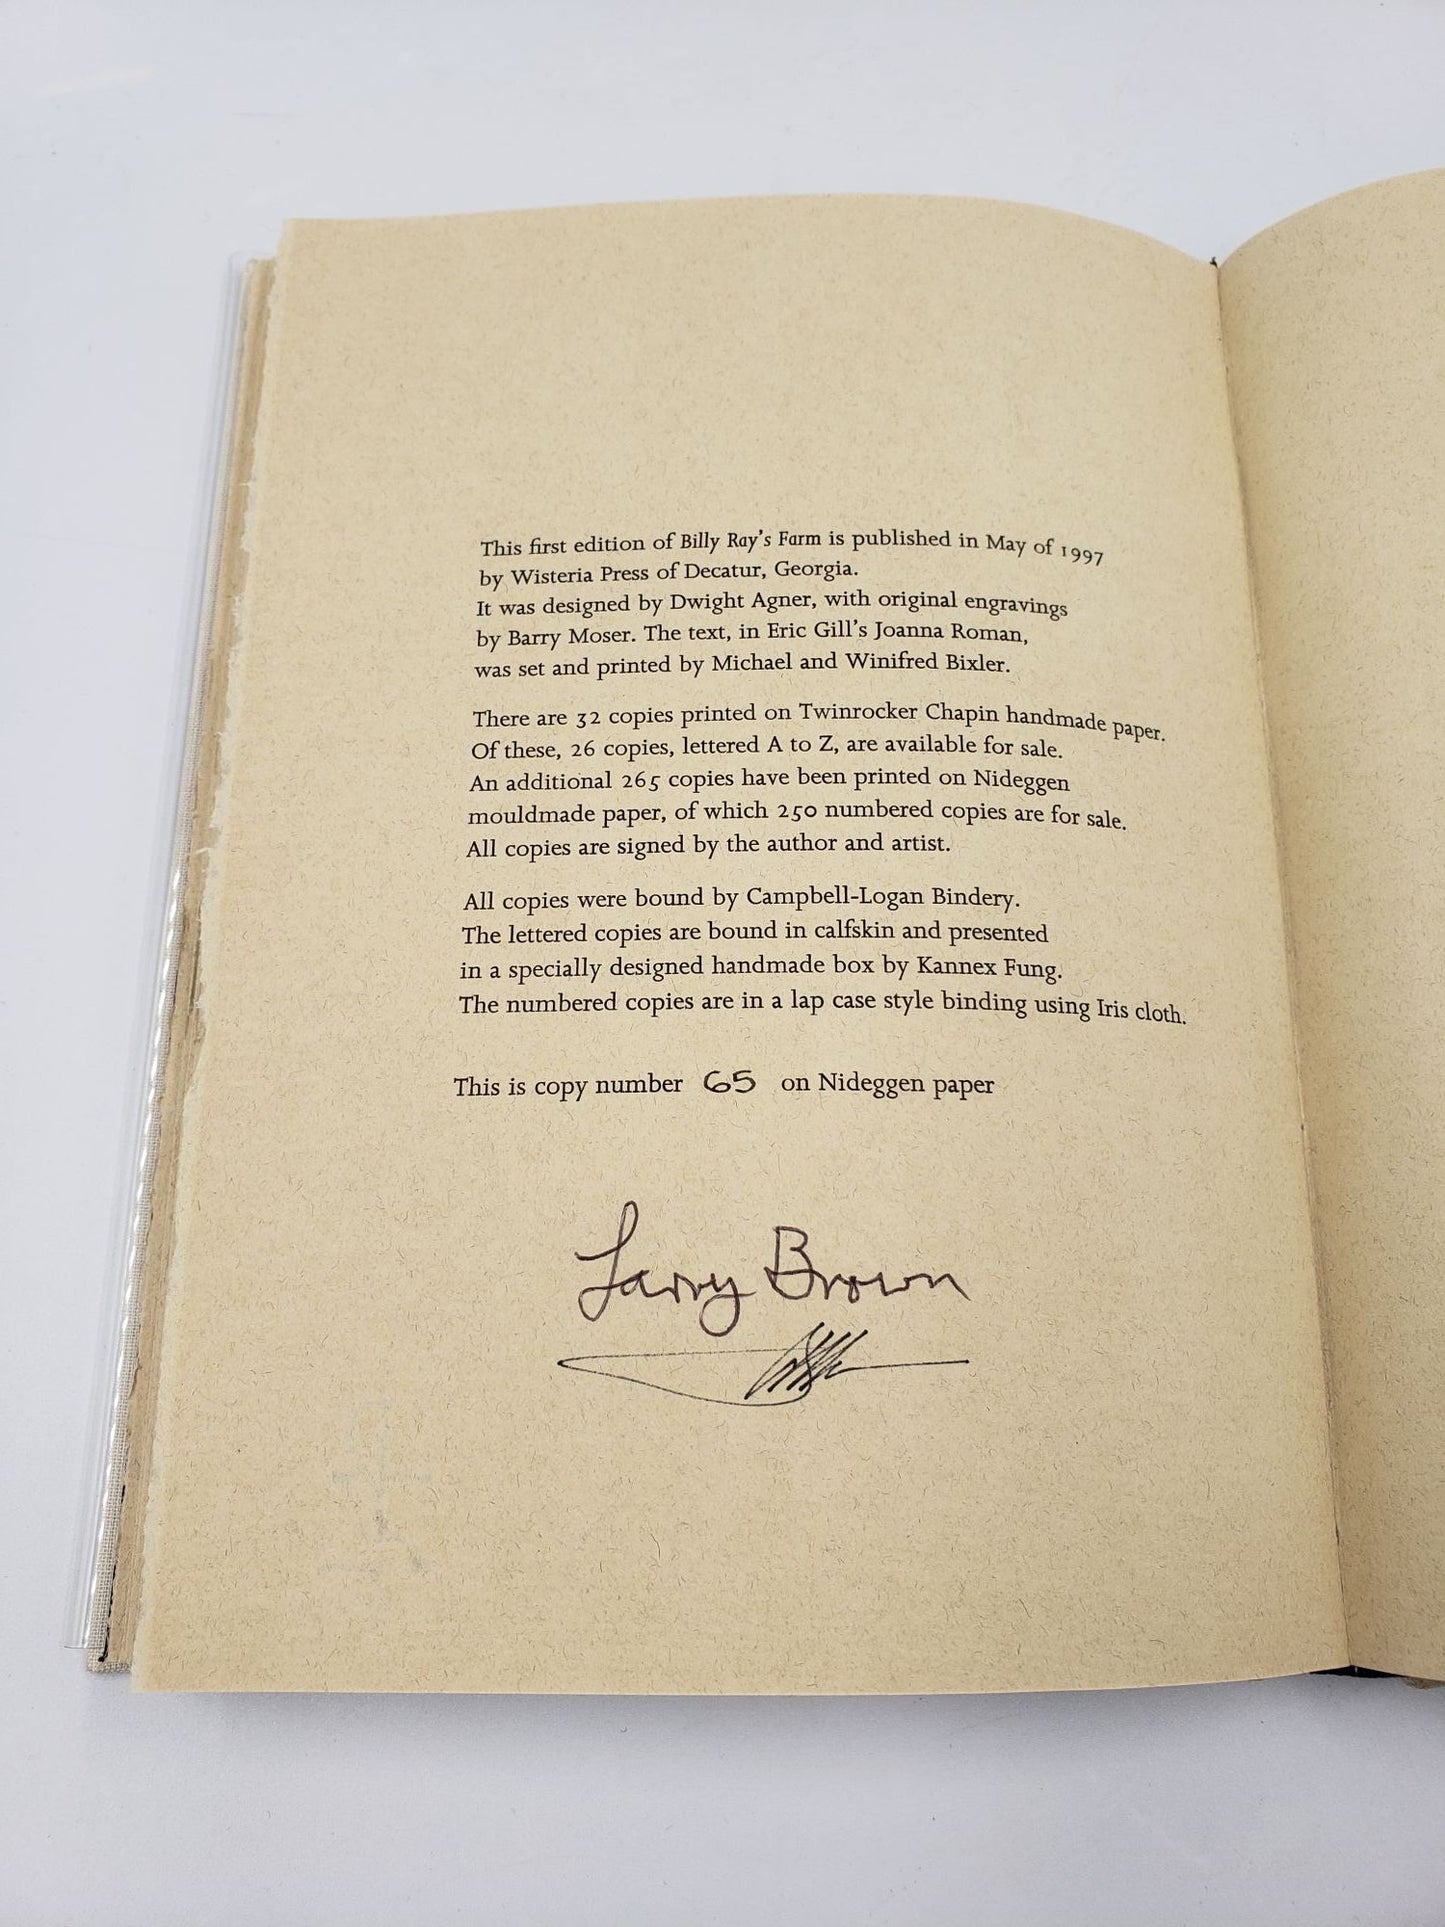 This first edition of Billy Ray's Farm is published in May of 1997
by Wisteria Press of Decatur, Georgia.
It was designed by Dwight Agner, with original engravings
by Barry Moser. The text, in Eric Gill's Joanna Roman,
was set and printed by Michael and Winifred Bixler.
There are 32 copies printed on Twinrocker Chapin handmade paper.
Of these, 26 copies, lettered A to Z, are available for sale.
An additional 265 copies have been printed on Nideggen
mouldmade paper, of which 250 numbered copies are for sale.
All copies are signed by the author and artist.
All copies were bound by Campbell-Logan Bindery.
The lettered copies are bound in calfskin and presented
in a specially designed handmade box by Kannex Fung.
The numbered copies are in a lap case style binding using Iris cloth.
This is copy number 65 on Nideggen paper
Larry Brown